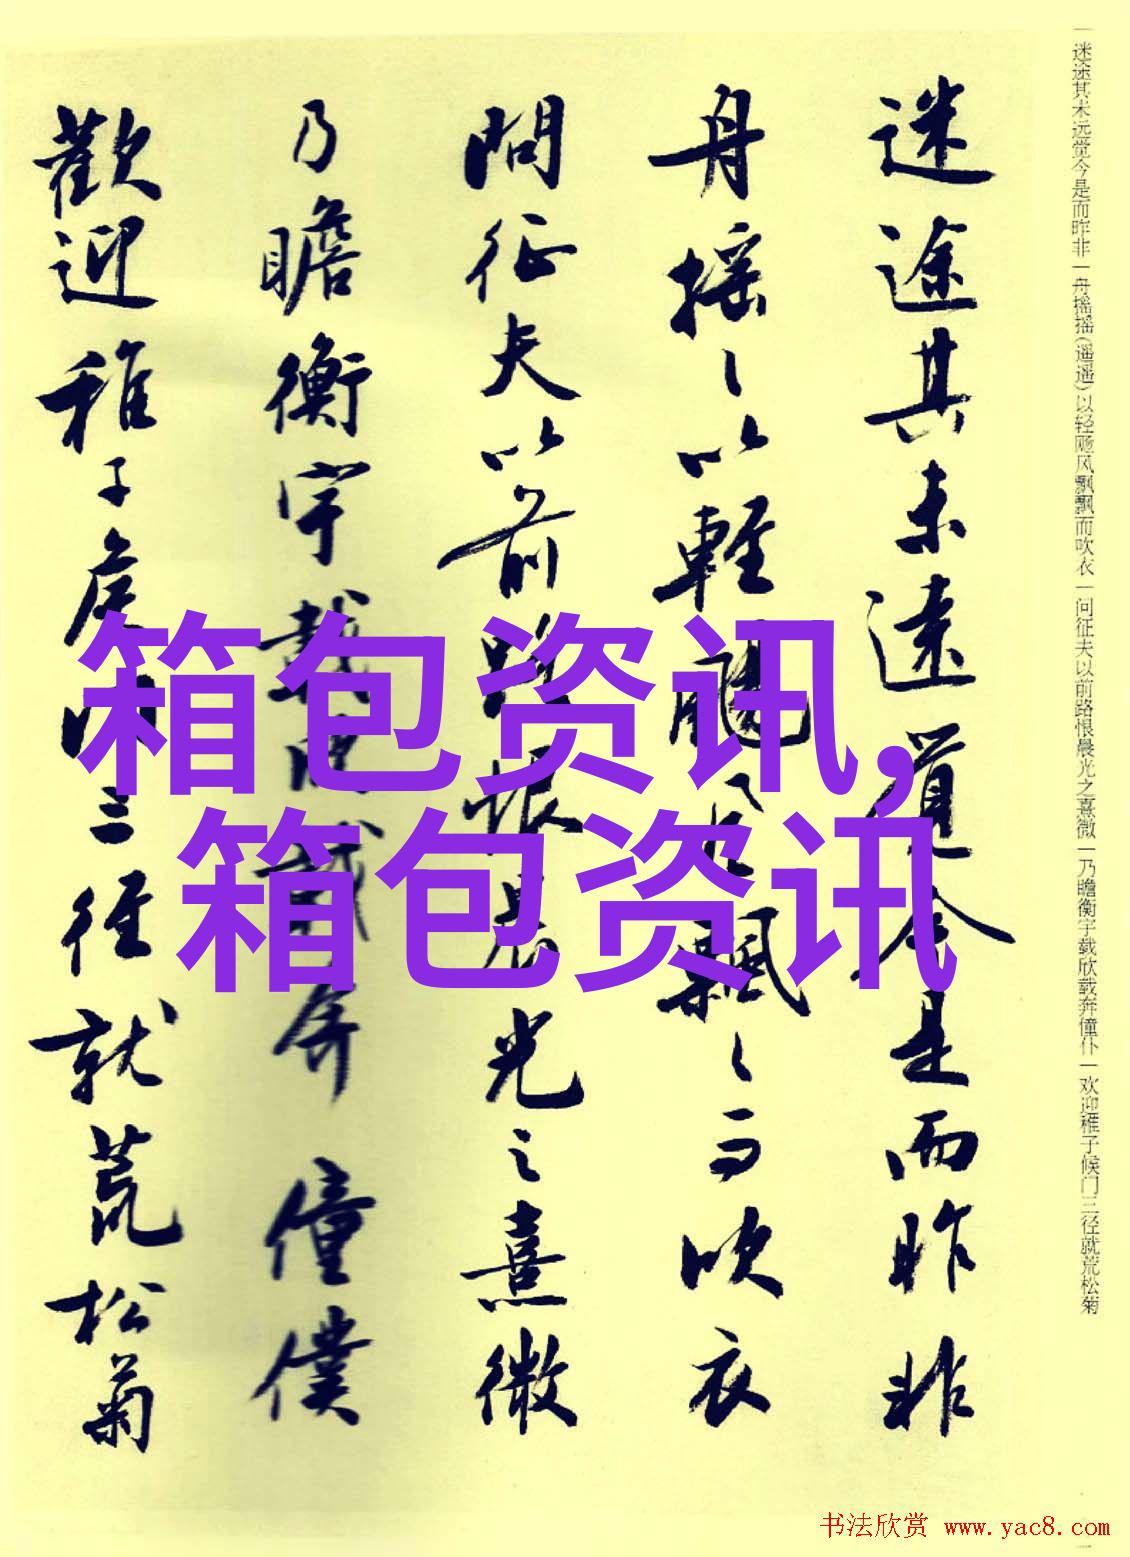 一迷途其未远觉今是而昨非一舟摇摇(遥遥)以轻飏风飘飘而吹衣一问征夫以前路恨晨光之熹微一乃瞻衡宇载欣载奔僮仆一欢迎稚子候门三径就荒松菊
迷途其未遠覺今是而昨非
舟摇〻以輕颺風飄〻而吹衣
問征夫以前路恨晨光之熹微
乃瞻衡宇載欣載奔僮僕
歡迎稚子候門三徑就荒松菊
箱包资讯,
箱包资讯
书法欣赏 www.yac8.com